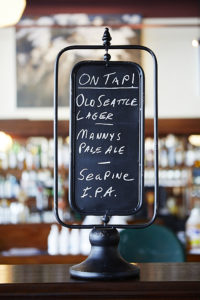 ON TAP!
OLD SEATTLE
LAGER
—
MANNYS
PALE ALE
—
SEAPINE
I.P.A.